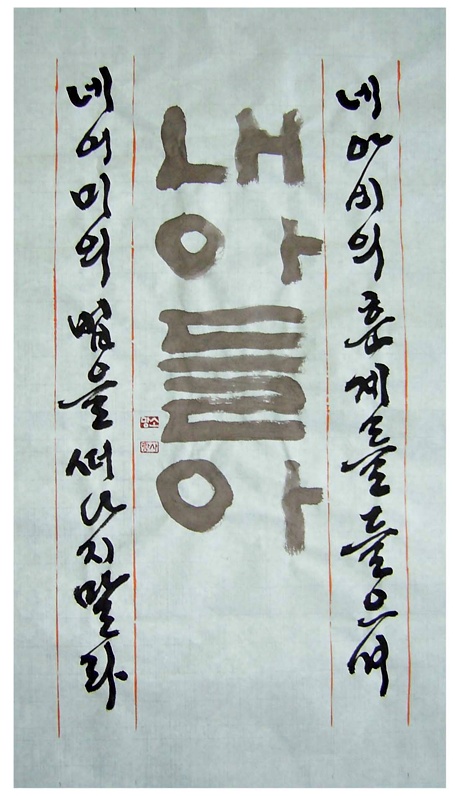 네 아비의 훈계를 들으며
내 아들아
네 어미의 법을 떠나지 말라